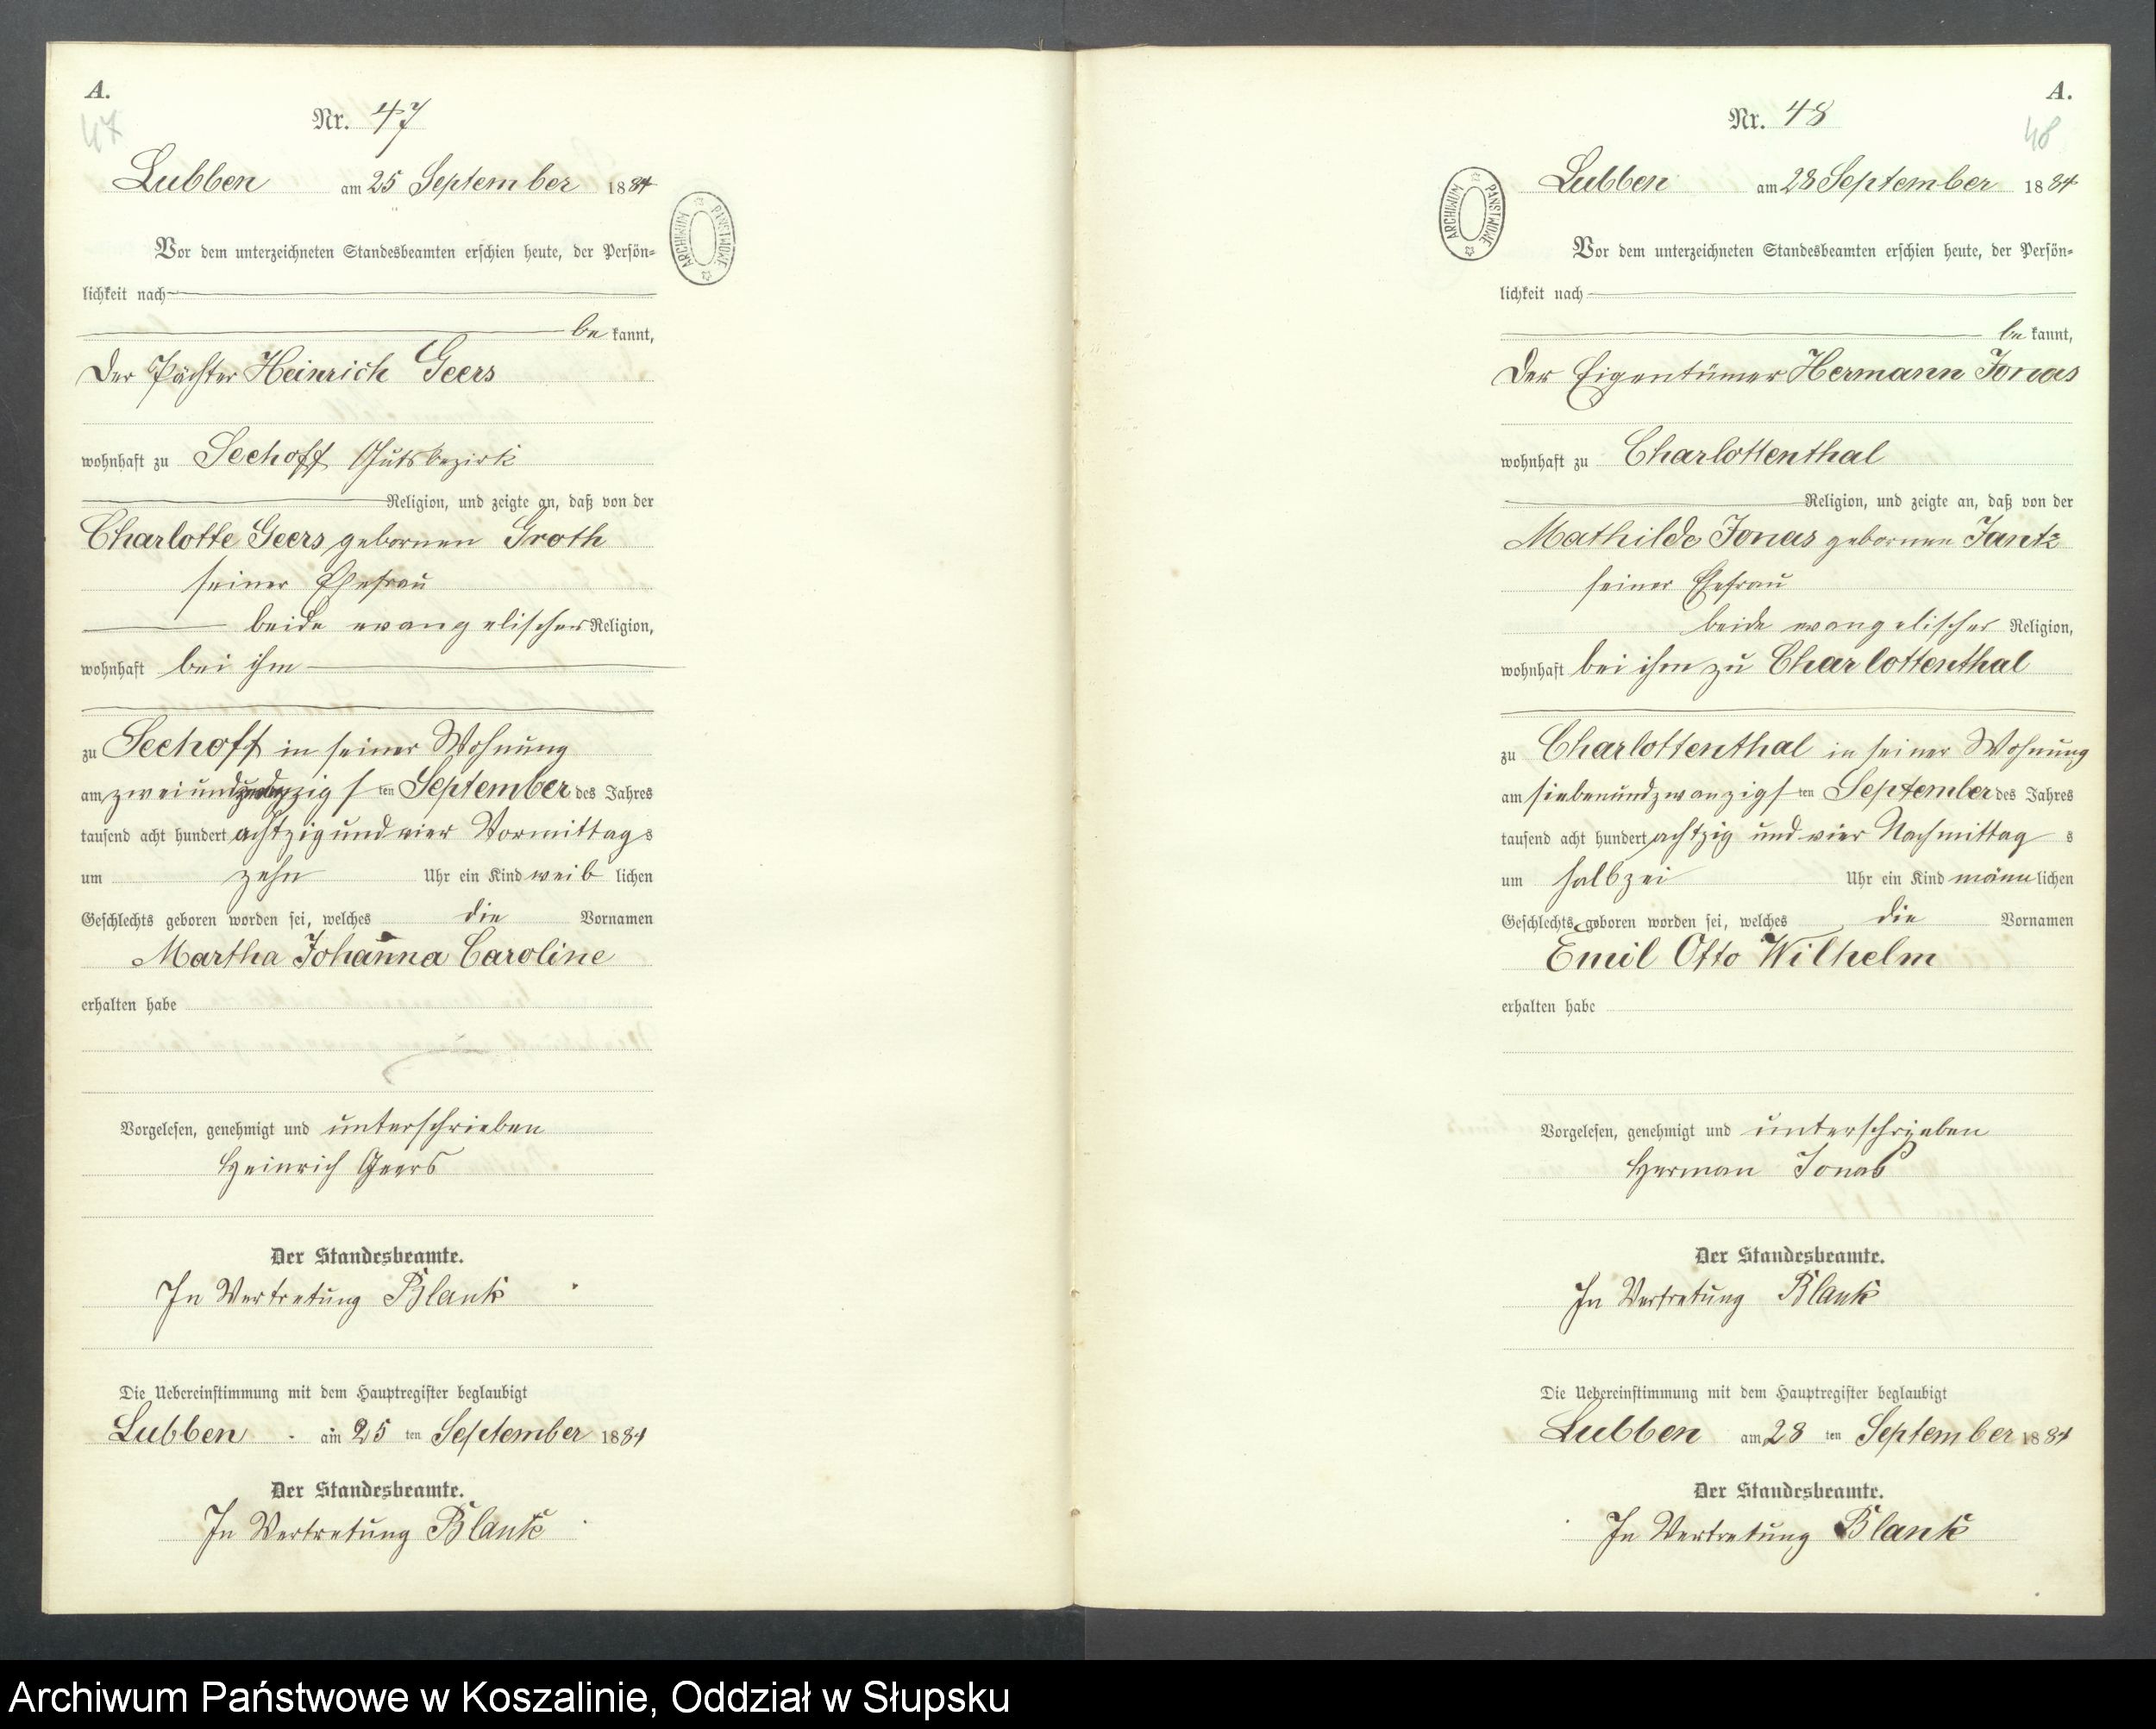 A.
47
Nr. 47
Lubben am 25 September 1884
ARCHIWUM PAŃSTWOWE
Vor dem unterzeichneten Standesbeamten erschien heute, der Persön-
lichkeit nach
be kannt,
Der Pächter Heinrich Geers
wohnhaft zu Seehoff Gutsbezirk
Religion, und zeigte an, daß von der
Charlotte Geers gebornen Groth
seiner Ehefrau
beide evangelischer Religion,
wohnhaft bei ihm
zu Seehoff in seiner Wohnung
am zweiundzwanzigsten September des Jahres
tausend acht hundert achtzig und vier Vormittags
um zehn Uhr ein Kind weiblichen
Geschlechts geboren worden sei, welches die Vornamen
Martha Johanna Caroline
erhalten habe
Vorgelesen, genehmigt und unterschrieben
Heinrich Geers
Der Standesbeamte.
In Vertretung Blank
Die Uebereinstimmung mit dem Hauptregister beglaubigt
Lubben am 25 ten September 1884
Der Standesbeamte.
In Vertretung Blank
A.
48
Nr. 48
Lubben am 28 September 1884
ARCHIWUM PAŃSTWOWE
Vor dem unterzeichneten Standesbeamten erschien heute, der Persön-
lichkeit nach
be kannt,
Der Eigentümer Hermann Jonas
wohnhaft zu Charlottenthal
Religion, und zeigte an, daß von der
Mathilde Jonas gebornen Jantz
seiner Ehefrau
beide evangelischer Religion,
wohnhaft bei ihm zu Charlottenthal
zu Charlottenthal in seiner Wohnung
am siebenundzwanzigsten September des Jahres
tausend acht hundert achtzig und vier Nachmittags
um halbzei Uhr ein Kind männlichen
Geschlechts geboren worden sei, welches die Vornamen
Emil Otto Wilhelm
erhalten habe
Vorgelesen, genehmigt und unterschrieben
Herman Jonas
Der Standesbeamte.
In Vertretung Blank
Die Uebereinstimmung mit dem Hauptregister beglaubigt
Lubben am 28 ten September 1884
Der Standesbeamte.
In Vertretung Blank
Archiwum Państwowe w Koszalinie, Oddział w Słupsku